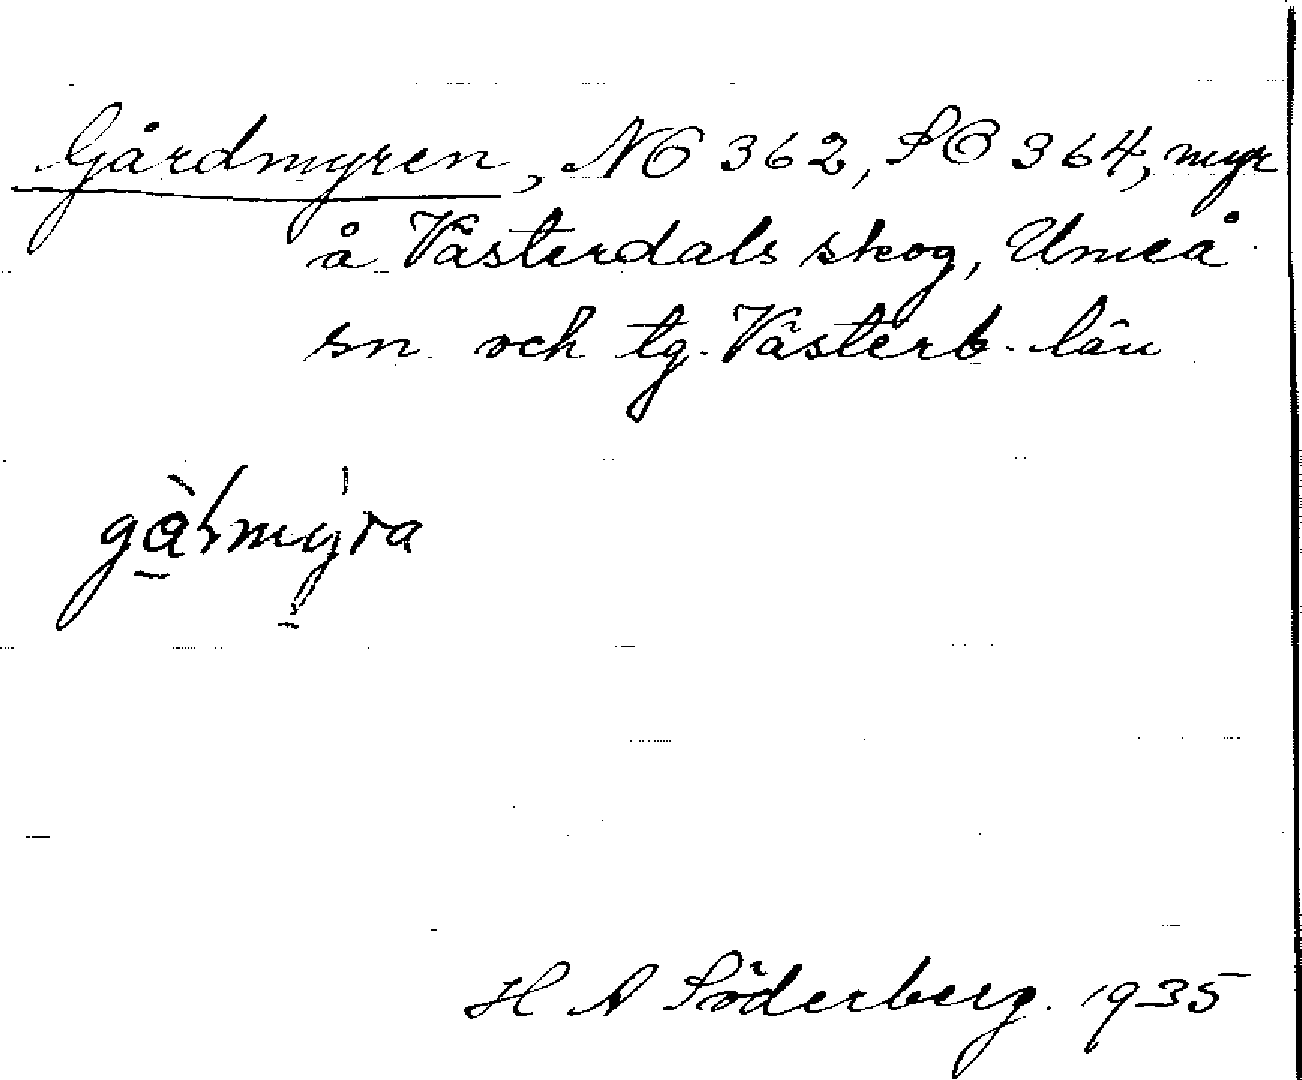 Gårdmyren, NO 362, SO 364, myr
å Västerdals skog, Umeå
sn och tg. Västerb. län
H A Söderberg. 1935